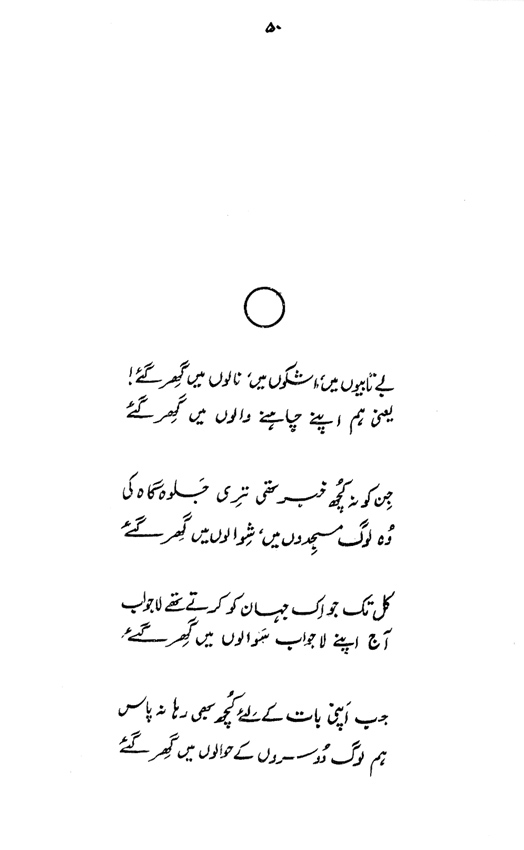 ۵۰
بے تابیوں میں، اشکوں میں، نالوں میں گھِر گئے!
یعنی ہم اپنے چاہنے والوں میں گھِر گئے
جِن کو نہ کُچھ خبر تھی تری جلوہ گاہ کی
وُہ لوگ مسجِدوں میں، شِوالوں میں گھِر گئے
کل تک جو اِک جہان کو کرتے تھے لاجواب
آج اپنے لاجواب سَوالوں میں گھِر گئے
جب اَپنی بات کے لِئے کُچھ بھی رہا نہ پاس
ہم لوگ دُوسروں کے حوالوں میں گھِر گئے